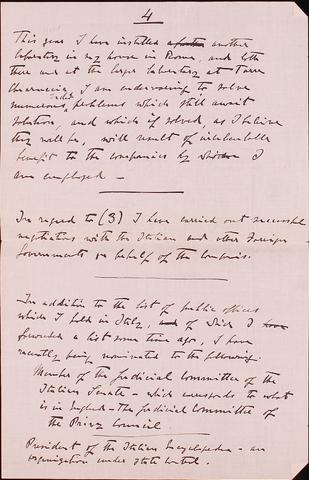 4
This year I have installed another
laboratory in my house in Rome, and both
there and at the larger laboratory at Torre
Chiaruccia, I am endeavouring to solve
numerous radio problems which still await
solution, and which if solved, as I believe
they will be, will result of incalculable
benefit to the companies by which I
am employed —
In regard to (3) I have carried out successful
negotiations with the Italian and other Foreign
Governments on behalf of the Companies.
In addition to the list of public offices
which I hold in Italy, of which I
forwarded a list some time ago, I have
recently being nominated to the following:
Member of the Judicial Committee of the
Italian Senate — which corresponds to what
is in England — the Judicial Committee of
the Privy Council
President of the Italian Encyclopedia — an
organization under State control.